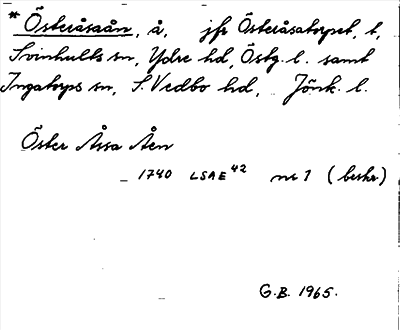 * Österåsaån, å, jfr Österåsatorpet, t,
Svinhults sn, Ydre hd, Östg. l. samt
Ingatorps sn, S. Vedbo hd, Jönk. l.
Öster Åssa Åen
1740 LSAE 42 nr 1 (beskr)
G.B. 1965.